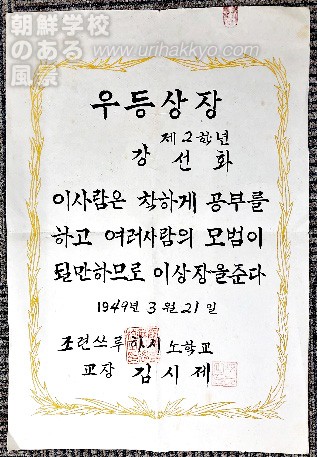 朝鮮学校
のある
風景
www.urihakkyo.com
우등상장
제2학년
강선화
이사람은 착하게 공부를
하고 여러사람의 모범이
될만하므로 이상장을준다
1949년 3월 21일
조련쓰루하시 노학교
교장 김시제